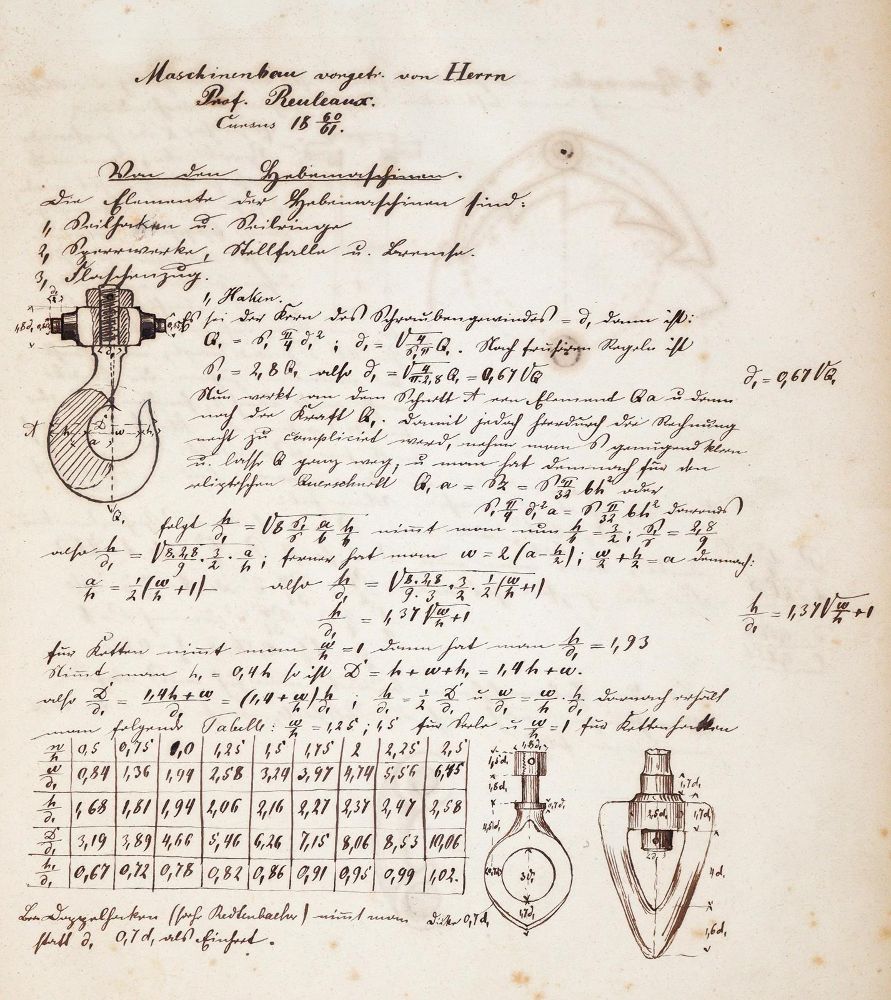 Maschinenbau vorgetr. von Herrn
Prof. Reuleaux.
Cursus 18 60/61.
Von den Hebemaschinen.
Die Elemente der Hebemaschinen sind:
1, Seilhaken u. Seilringe
2, Sperrwerke, Stellfalle u. Bremse.
3, Flaschenzug.
1, Haken.
Es sei der Kern des Schraubengewindes = d, dann ist:
Q₁ = S₁ π/4 d₁² ; d₁ = √4/S₁π Q₁. Nach früheren Regeln ist
S₁ = 2,8 Q₁ also d₁ = √4/π·2,8 Q₁ = 0,67 √Q₁
d₁ = 0,67 √Q₁
Nun wirkt an dem Schnitt A ein Element Qa u dann
noch die Kraft Q₁. damit jedoch hierdurch die Rechnung
nicht zu complicirt werd, nehme man S genügend klein
u. lasse Q ganz weg, u man hat demnach für den
eliptischen Querschnitt Q₁ a = SZ = S π/32 bh² oder
S₁ π/4 d₁² a = S π/32 bh² daraus
folgt h/d₁ = √8 S₁/S a/b h/h nimmt man nun h/b = 3/2 ; S₁/S = 2,8/9
also h/d₁ = √8·2,8/9 · 3/2 · a/h ; ferner hat man w = 2 (a - h/2) ; w/2 + h/2 = a demnach:
a/h = 1/2 (w/h + 1) also h/d₁ = √8·2,8/9·3 · 3/2 · 1/2 (w/h + 1)
h/d₁ = 1,37 √w/h + 1
h/d₁ = 1,37 √w/h + 1
für Ketten nimmt man w/h = 1 dann hat man h/d₁ = 1,93
Nimmt man h₁ = 0,4h so ist D = h + w + h₁ = 1,4h + w.
also D/d₁ = 1,4h + w/d₁ = (1,4 + w/h) h/d₁ ; h/d₁ = 1/2 D/d₁ u w/d₁ = w/h · h/d₁ darnach erhält
man folgende Tabelle: w/h = 1,25 ; 1,5 für Seile u w/h = 1 für Kettenhaken
w/h 0,5 0,75 1,0 1,25 1,5 1,75 2 2,25 2,5
w/d₁ 0,84 1,36 1,94 2,58 3,24 3,97 4,74 5,56 6,45
h/d₁ 1,68 1,81 1,94 2,06 2,16 2,27 2,37 2,47 2,58
D/d₁ 3,19 3,89 4,66 5,46 6,26 7,15 8,06 8,53 10,06
h₁/d₁ 0,67 0,72 0,78 0,82 0,86 0,91 0,95 0,99 1,02.
Bei Doppelhaken (siehe Redtenbacher) nimmt man
statt d₁ 0,7 d₁ als Einheit.
Dicke 0,7 d₁
A
D
a
w
Q₁
1,8 d₁
1,5 d₁
1,8 d₁
0,7 d₁
4,5 d₁
3 d₁
1,7 d₁
1,7 d₁
2,5 d₁
1,7 d₁
4 d₁
1,6 d₁